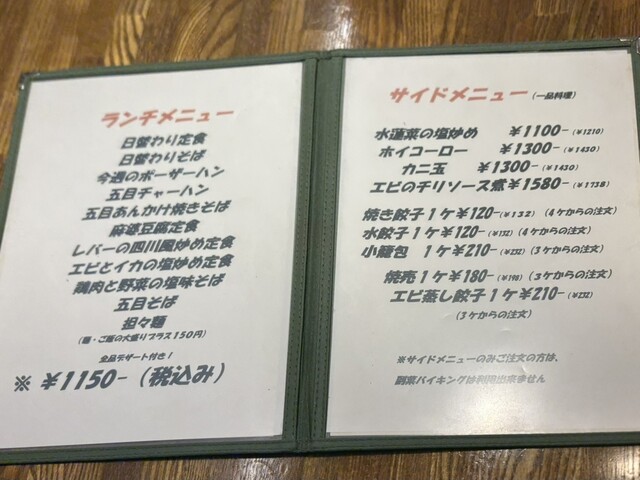 ランチメニュー
日替わり定食
日替わりそば
今週のポーザーハン
五目チャーハン
五目あんかけ焼きそば
麻婆豆腐定食
レバーの四川風炒め定食
エビとイカの塩炒め定食
鶏肉と野菜の塩味そば
五目そば
担々麺
(麺・ご飯の大盛りプラス150円)
全品デザート付き!
※ ¥1150-(税込み)
サイドメニュー(一品料理)
水蓮菜の塩炒め ¥1100-(¥1210)
ホイコーロー ¥1300-(¥1430)
カニ玉 ¥1300-(¥1430)
エビのチリソース煮¥1580-(¥1738)
焼き餃子1ケ¥120-(¥132)(4ケからの注文)
水餃子1ケ¥120-(¥132)(4ケからの注文)
小籠包 1ケ¥210-(¥232)(3ケからの注文)
焼売1ケ¥180-(¥198)(3ケからの注文)
エビ蒸し餃子1ケ¥210-(¥232)
(3ケからの注文)
※サイドメニューのみご注文の方は、
副菜バイキングは利用出来ません